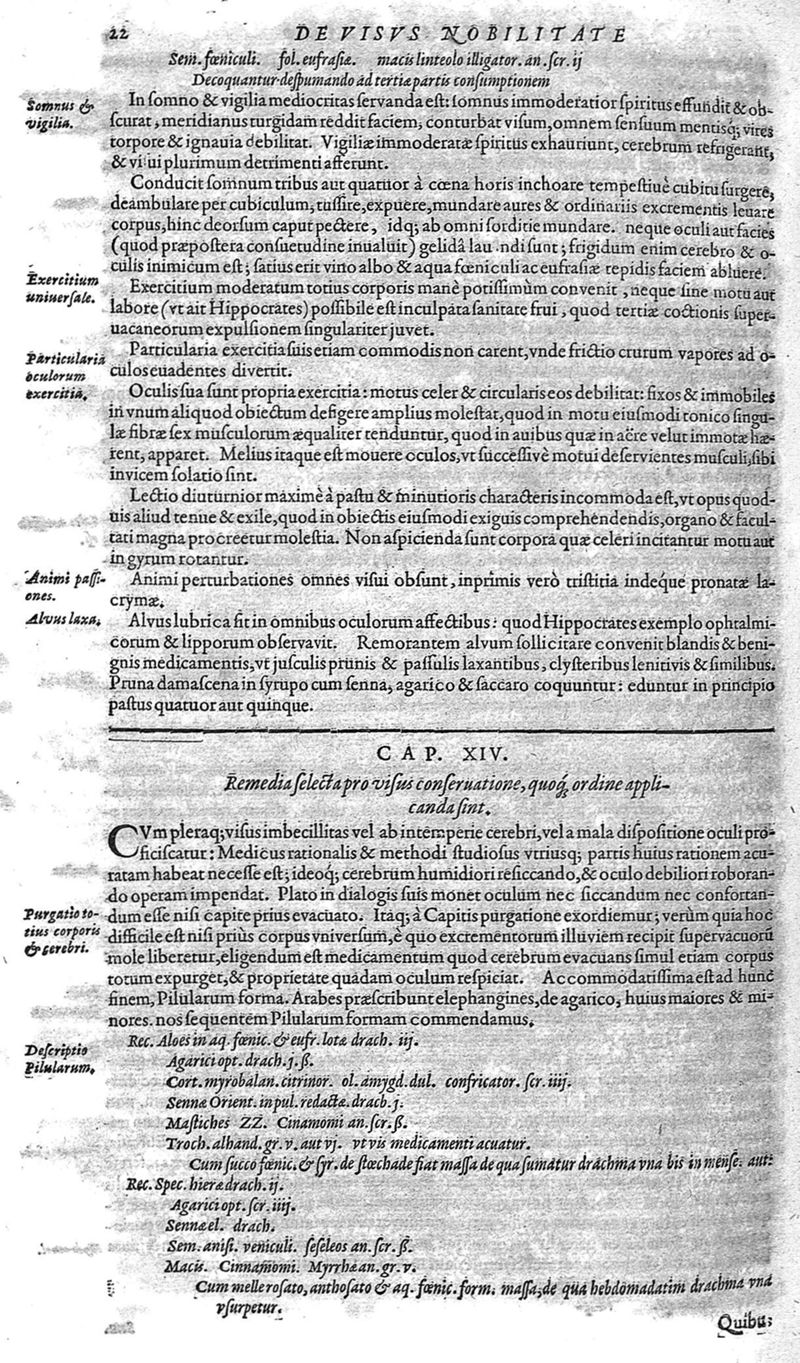 22 DE VISVS NOBILITATE
Sem. fœniculi. fol. eufrasiæ. macis linteolo illigator. an. ſcr. ij
Decoquantur deſpumando ad tertia partis conſumptionem
Somnus &
vigilia.
In ſomno & vigilia mediocritas ſervanda eſt: ſomnus immoderatior ſpiritus effundit & ob-
ſcurat, meridianus turgidam reddit faciem, conturbat viſum, omnem ſenſuum mentisq; vires
torpore & ignavia debilitat. Vigiliæ immoderatæ ſpiritus exhauriunt, cerebrum refrigerant,
& viſui plurimum detrimenti afferunt.
Conducit ſomnum tribus aut quatuor à cœna horis inchoare tempeſtiuè cubitu ſurgere,
deambulare per cubiculum, tuſſire, expuere, mundare aures & ordinariis excrementis leuare
corpus, hinc deorſum caput pectere, idq; ab omni ſorditie mundare. neque oculi aut facies
(quod præpoſtera conſuetudine inualuit) gelidâ lau ndi ſunt; frigidum enim cerebro & o-
culis inimicum eſt; ſatius erit vino albo & aqua fœniculi ac eufraſiæ tepidis faciem abluere.
Exercitium
uniuerſale.
Exercitium moderatum totius corporis manè potiſſimùm convenit, neque ſine motu aut
labore (vt ait Hippocrates) poſſibile eſt inculpata ſanitate frui, quod tertiæ coctionis ſuper-
uacaneorum expulſionem ſingulariter juvet.
Particularia
oculorum
exercitia,
Particularia exercitia ſuis etiam commodis non carent, vnde frictio crurum vapores ad o-
culos euadentes divertit.
Oculis ſua ſunt propria exercitia: motus celer & circularis eos debilitat: fixos & immobiles
in vnum aliquod obiectum defigere amplius moleſtat, quod in motu eiuſmodi tonico ſingu-
læ fibræ ſex muſculorum æqualiter tenduntur, quod in auibus quæ in aëre velut immotæ hæ-
rent, apparet. Melius itaque eſt mouere oculos, vt ſucceſſivè motui deſervientes muſculi, ſibi
invicem ſolatio ſint.
Lectio diuturnior maximè à paſtu & minutioris characteris incommoda eſt, vt opus quod-
uis aliud tenue & exile, quod in obiectis eiuſmodi exiguis comprehendendis, organo & facul-
tati magna procreetur moleſtia. Non aſpicienda ſunt corpora quæ celeri incitantur motu aut
in gyrum rotantur.
Animi paſſi-
ones.
Animi perturbationes omnes viſui obſunt, inprimis verò triſtitia indeque pronatæ la-
crymæ.
Alvus laxa,
Alvus lubrica ſit in omnibus oculorum affectibus: quod Hippocrates exemplo ophtalmi-
corum & lipporum obſervavit. Remorantem alvum ſollicitare convenit blandis & beni-
gnis medicamentis, vt juſculis prunis & paſſulis laxantibus, clyſteribus lenitivis & ſimilibus.
Pruna damaſcena in ſyrupo cum ſenna, agarico & ſaccaro coquuntur: eduntur in principio
paſtus quatuor aut quinque.
CAP. XIV.
Remedia ſelecta pro viſus conſeruatione, quoq́; ordine appli-
canda ſint.
CVm pleraq; viſus imbecillitas vel ab intemperie cerebri, vel a mala diſpoſitione oculi pro-
ficiſcatur: Medicus rationalis & methodi ſtudioſus vtriusq; partis huius rationem accu-
ratam habeat neceſſe eſt; ideoq; cerebrum humidiori reſiccando, & oculo debiliori roboran-
do operam impendat. Plato in dialogis ſuis monet oculum nec ſiccandum nec confortan-
Purgatio to-
tius corporis
& cerebri.
dum eſſe niſi capite prius evacuato. Itaq; à Capitis purgatione exordiemur; verùm quia hoc
difficile eſt niſi priùs corpus vniverſum, è quo excrementorum illuviem recipit ſupervacuorū
mole liberetur, eligendum eſt medicamentum quod cerebrum evacuans ſimul etiam corpus
totum expurget, & proprietate quadam oculum reſpiciat. Accommodatiſſima eſt ad hunc
finem, Pilularum forma. Arabes præſcribunt elephangines, de agarico, huius maiores & mi-
nores. nos ſequentem Pilularum formam commendamus.
Deſcriptio
Pilularum,
Rec. Aloes in aq. fœnic. & eufr. lotæ drach. iij.
Agarici opt. drach. j. ß.
Cort. myrobalan. citrinor. ol. amygd. dul. confricator. ſcr. iiij.
Sennæ Orient. in pul. redactæ. drach. j.
Maſtiches ZZ. Cinamomi an. ſcr. ß.
Troch. alhand. gr. v. aut vj. vt vis medicamenti acuatur.
Cum ſucco fœnic. & ſyr. de ſtœchade fiat maſſa de qua ſumatur drachma vna bis in menſe. aut:
Rec. Spec. hieræ drach. ij.
Agarici opt. ſcr. iiij.
Sennæ el. drach.
Sem. aniſi. veniculi. ſeſeleos an. ſcr. ß.
Macis. Cinnamomi. Myrrhæ an. gr. v.
Cum melle roſato, anthoſato & aq. fœnic. form. maſſa, de qua hebdomadatim drachma vna
vſurpetur.
Quibus